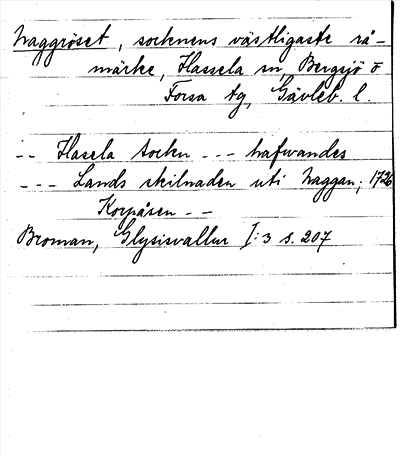 Waggröset, socknens västligaste rå-
märke, Hassela sn, Bergsjö o
Forsa tg, Gävleb. l.
-- Hasela Sockn --- hafwandes
--- Lands skilnaden uti Waggan; 1726
Korpåsen --
Broman, Glysisvallur I:3 s. 207